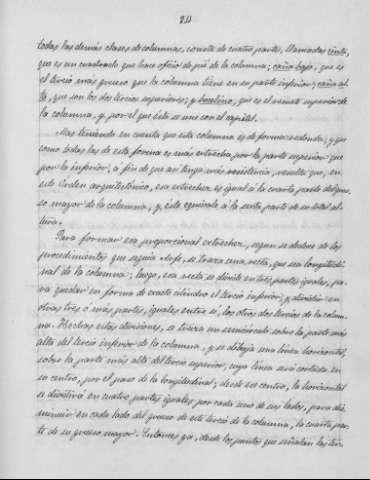 211
todas las demás clases de columnas, consta de cuatro partes, llamadas cinta,
que es un cuadrado que hace oficio de pié de la columna; caña baja, que es
el tercio más grueso que la columna tiene en su parte inferior; caña al-
ta, que son los dos tercios superiores; y bocelino, que es el remate superior de
la columna, y por el que ésta se une con el capitel.
Mas teniendo en cuenta que esta columna es de forma redonda; y que
como todas las de esta forma es más estrecha por la parte superior que
por la inferior, á fin de que así tenga más resistencia, resulta que, en
este Orden arquitectónico, esa estrechez es igual á la cuarta parte del grue-
so mayor de la columna, y, ésta equivale á la sexta parte de su total al-
tura.
Para formar esa proporcional estrechez, según se deduce de los
procedimientos que seguía se traza una recta, que sea longitudi-
nal de la columna; luego, esa recta se divide en tres partes iguales, pa-
ra quedar en forma de exacto cilindro el tercio inferior; y dividir en
otras tres ó más partes, iguales entre sí, los otros dos tercios de la colum-
na. Hechas estas divisiones, se traza un semicírculo sobre la parte más
alta del tercio inferior de la columna, y se dibuja una línea horizontal,
sobre la parte más alta del tercio superior, cuya línea será cortada en
su centro, por el paso de la longitudinal; desde ese centro, la horizontal
se dividirá en cuatro partes iguales por cada uno de sus lados, para dis-
minuir en cada lado del grueso de este tercio de la columna, la cuarta par-
te de su grueso mayor. Entonces ya, desde los puntos que señalan las ter-